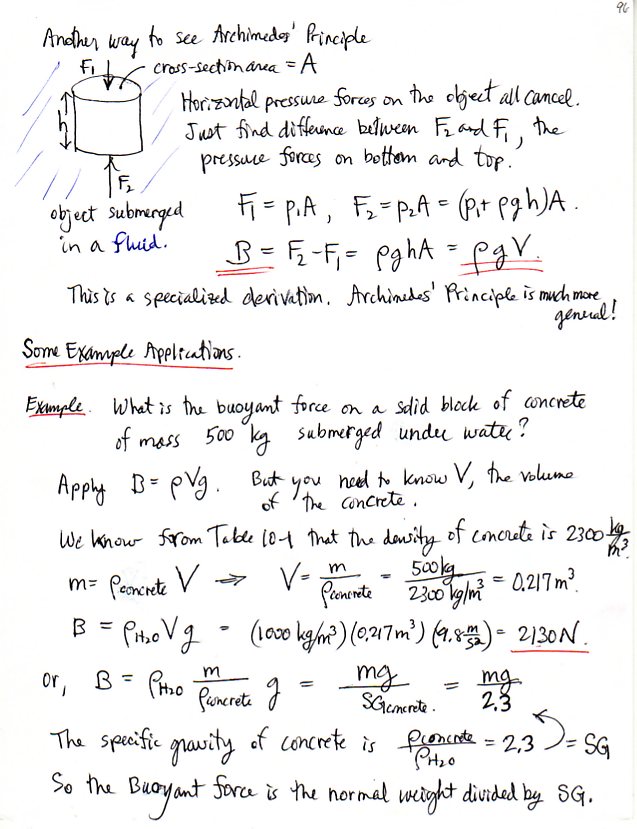 96
Another way to see Archimedes' Principle
F₁ cross-section area = A
h
Horizontal pressure forces on the object all cancel.
Just find difference between F₂ and F₁, the
pressure forces on bottom and top.
F₂
object submerged
in a fluid.
F₁ = p₁A, F₂ = p₂A = (p₁ + ρgh)A.
B = F₂-F₁ = ρghA = ρgV.
This is a specialized derivation. Archimedes' Principle is much more
general!
Some Example Applications.
Example. What is the buoyant force on a solid block of concrete
of mass 500 kg submerged under water?
Apply B = ρVg. But you need to know V, the volume
of the concrete.
We know from Table 10-1 that the density of concrete is 2300 kg/m³.
m = ρconcrete V ⇒ V = m/ρconcrete = 500 kg/2300 kg/m³ = 0.217 m³.
B = ρH₂O Vg = (1000 kg/m³)(0.217 m³)(9.8 m/s²) = 2130 N.
or, B = ρH₂O m/ρconcrete g = mg/SGconcrete. = mg/2.3
The specific gravity of concrete is ρconcrete/ρH₂O = 2.3 = SG
So the Buoyant force is the normal weight divided by SG.